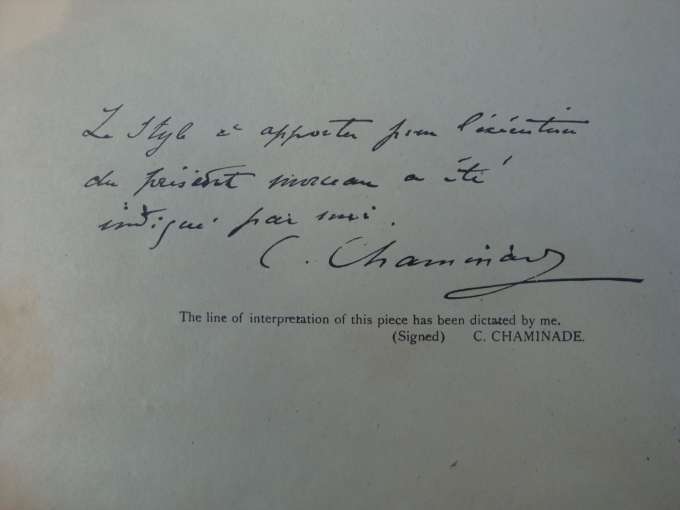 Le Style à apporter pour l'exécution
du présent morceau a été
indiqué par moi.
C. Chaminade
The line of interpretation of this piece has been dictated by me.
(Signed) C. CHAMINADE.